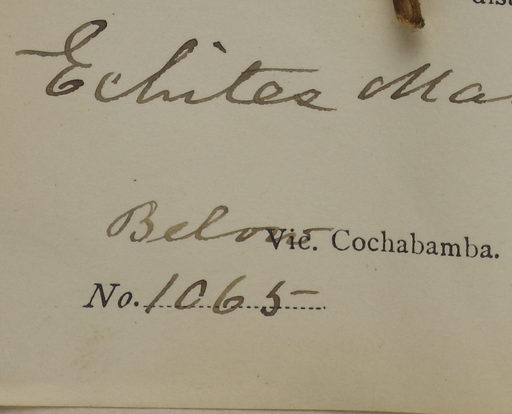 Echites Ma
Below Vic. Cochabamba.
No. 1065